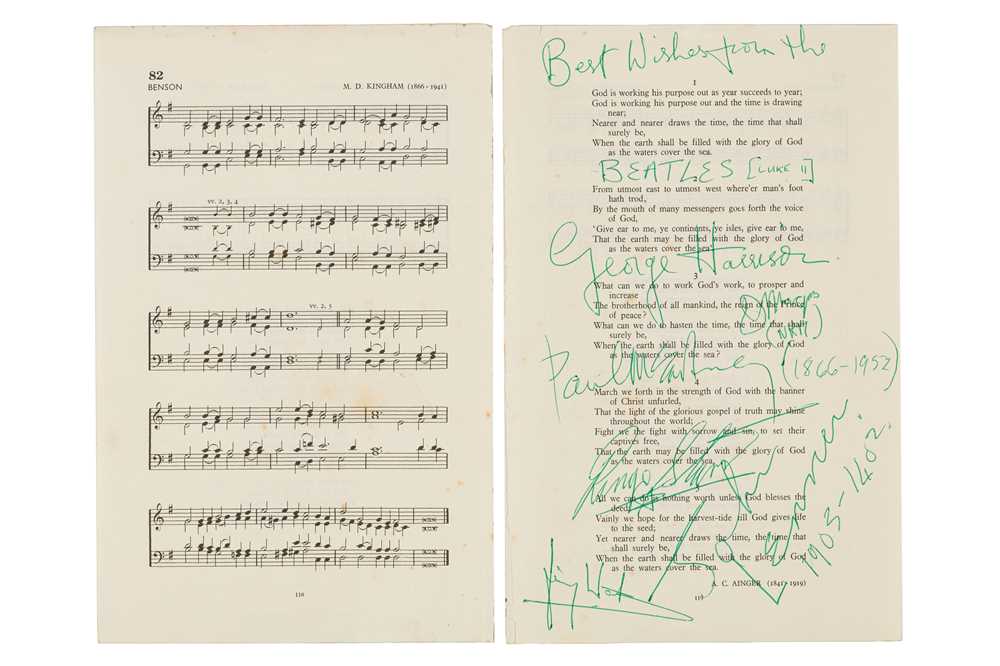 82
BENSON M. D. KINGHAM (1866-1941)
vv. 2, 3, 4
vv. 2, 5
118
Best Wishes from the
1
God is working his purpose out as year succeeds to year;
God is working his purpose out and the time is drawing
near;
Nearer and nearer draws the time, the time that shall
surely be,
When the earth shall be filled with the glory of God
as the waters cover the sea.
BEATLES [LUKE II]
From utmost east to utmost west where'er man's foot
hath trod,
By the mouth of many messengers goes forth the voice
of God,
'Give ear to me, ye continents, ye isles, give ear to me,
That the earth may be filled with the glory of God
as the waters cover the sea.'
George Harrison.
3
What can we do to work God's work, to prosper and
increase
The brotherhood of all mankind, the reign of the Prince
of peace?
What can we do to hasten the time, the time that shall
surely be,
When the earth shall be filled with the glory of God
as the waters cover the sea?
Paul McCartney (1866-1952)
4
March we forth in the strength of God with the banner
of Christ unfurled,
That the light of the glorious gospel of truth may shine
throughout the world;
Fight we the fight with sorrow and sin, to set their
captives free,
That the earth may be filled with the glory of God
as the waters cover the sea.
Ringo Starr
5
All we can do is nothing worth unless God blesses the
deed;
Vainly we hope for the harvest-tide till God gives life
to the seed;
Yet nearer and nearer draws the time, the time that
shall surely be,
When the earth shall be filled with the glory of God
as the waters cover the sea.
A. C. AINGER (1841-1919)
John Lennon
1903-1402.
119